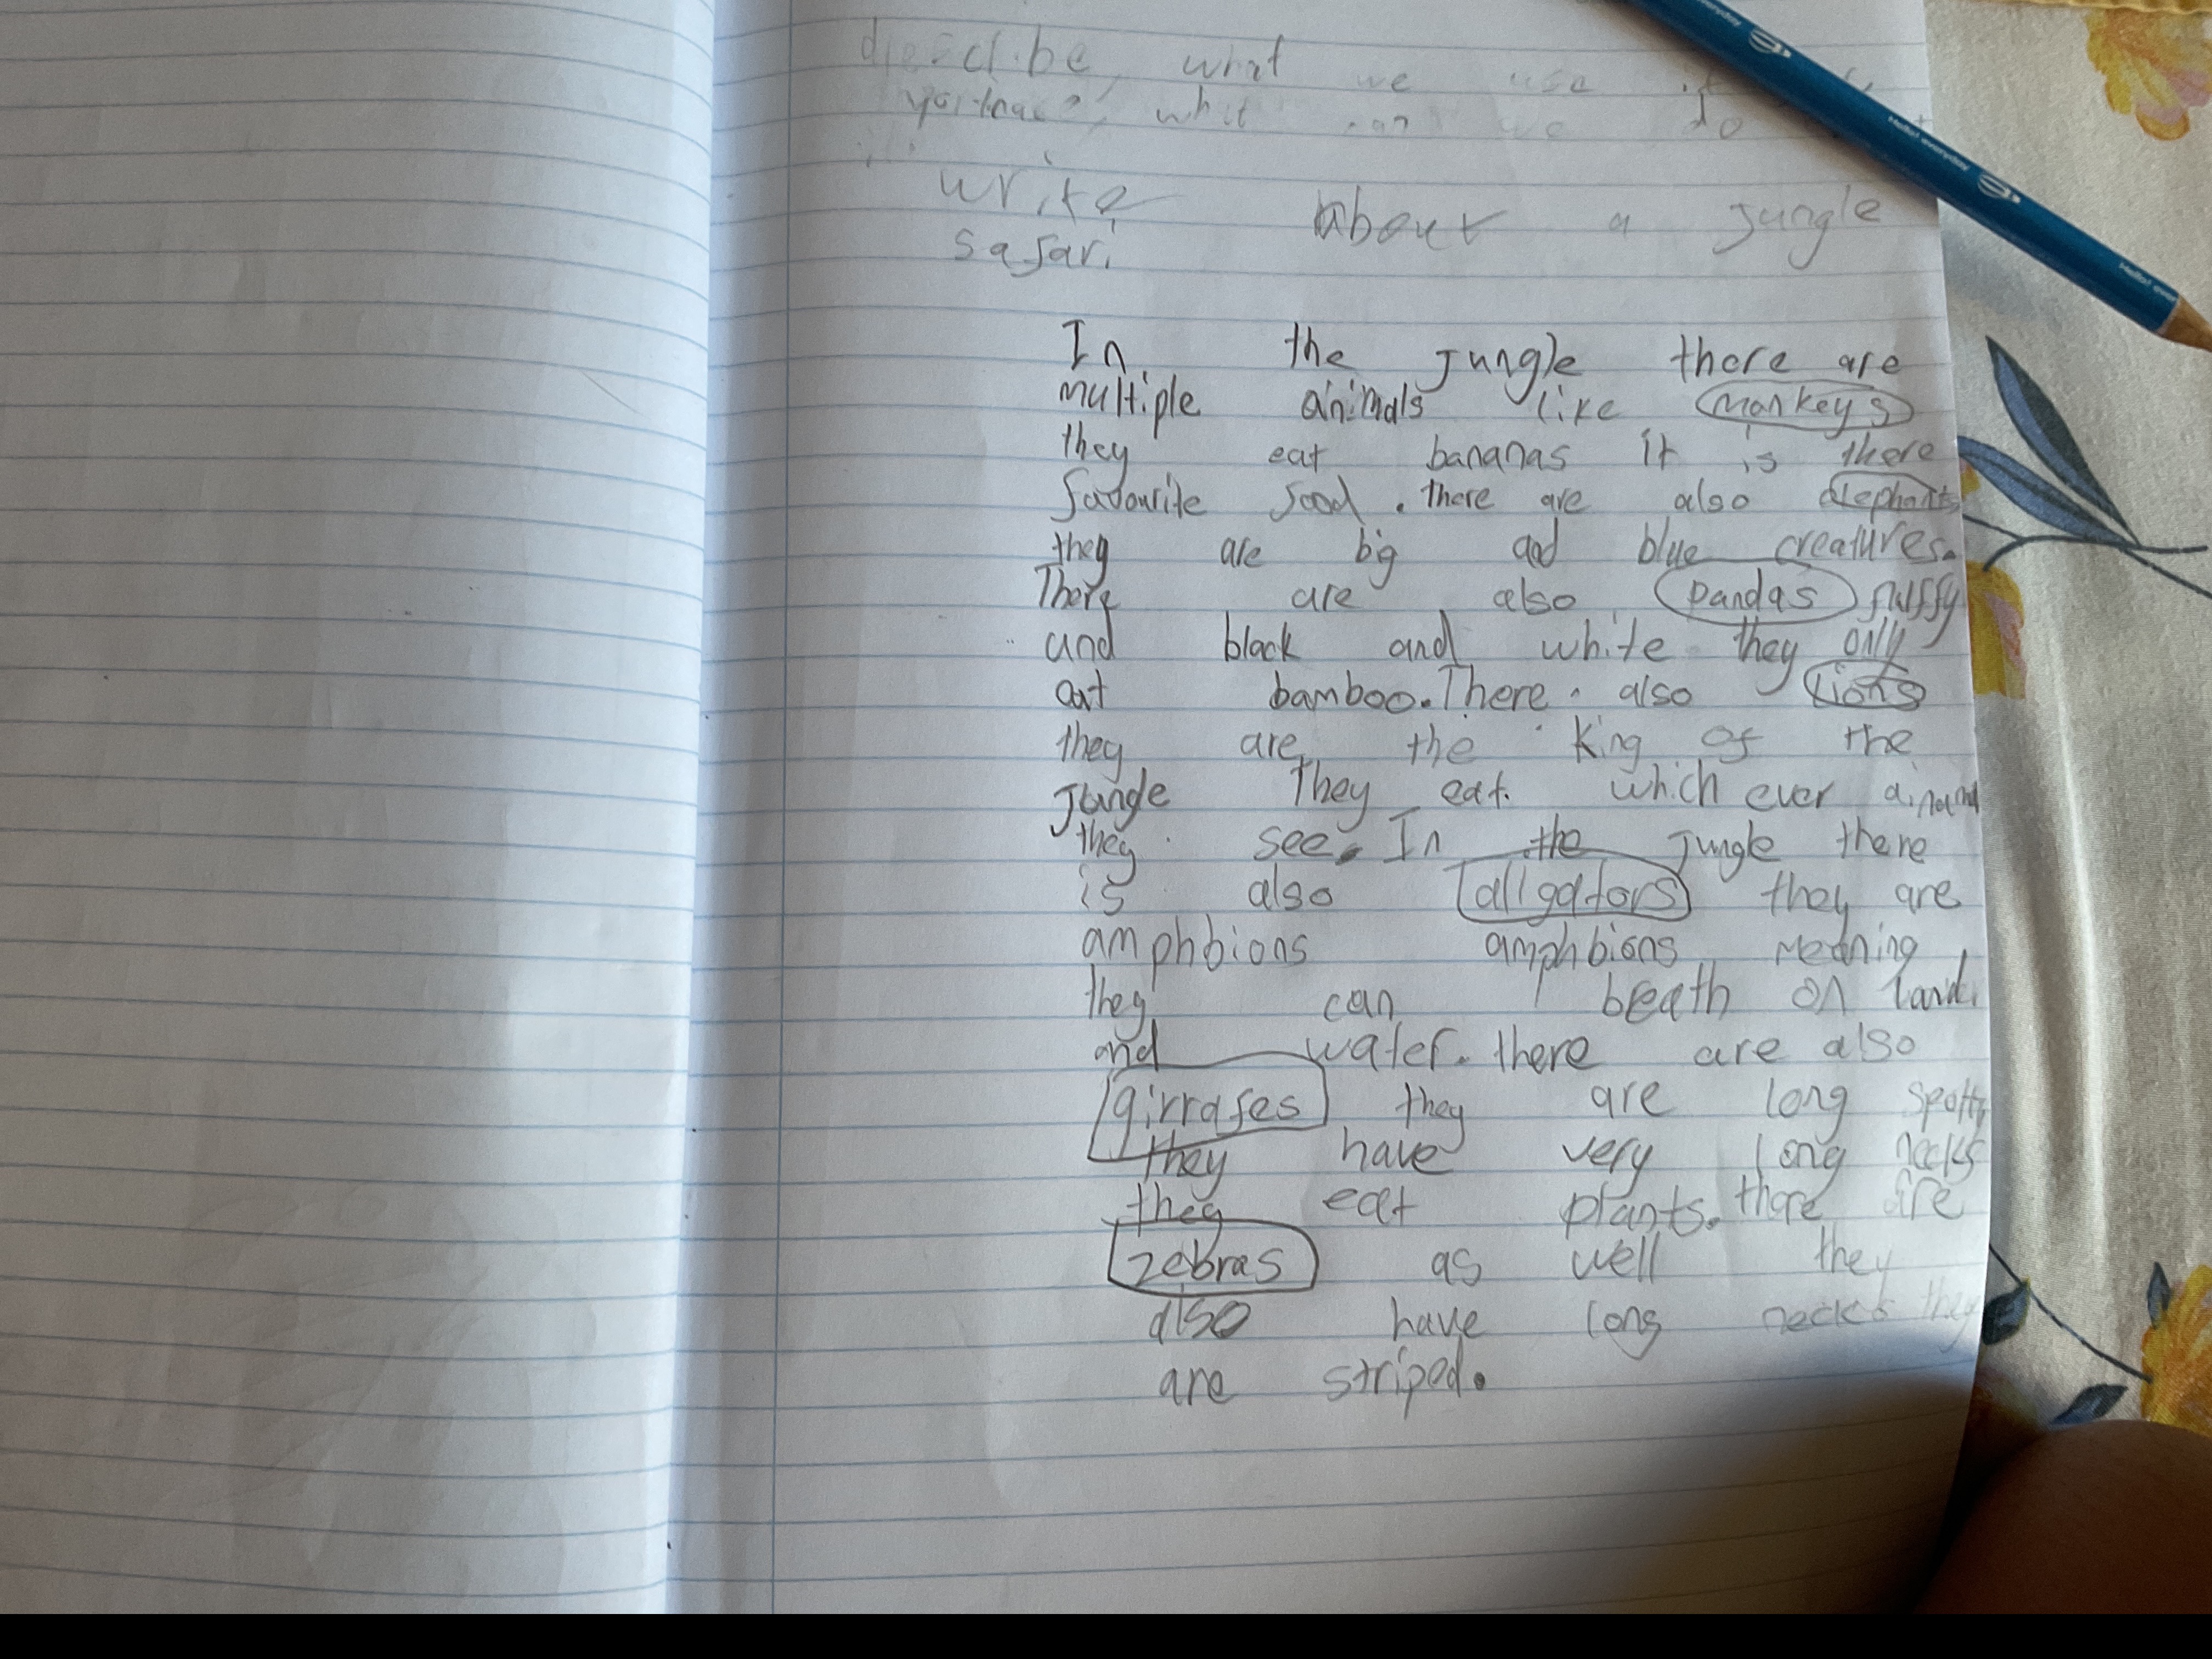 describe, what we use
what can we do
write about a jungle
safari
In the jungle there are
multiple animals like monkeys
they eat bananas it is there
favourite food. there are also elephants
they are big and blue creatures.
There are also pandas fluffy
and black and white they only
eat bamboo. There also lions
they are the king of the
jungle They eat which ever
they see. In the jungle there
is also alligators they are
amphbions amphbions meaning
they can breath on land
and water. there are also
girrafes they are long spotty
they have very long necks
they eat plants. there are
zebras as well they
also have long necks they
are striped.
Hello! everyday
Hello!